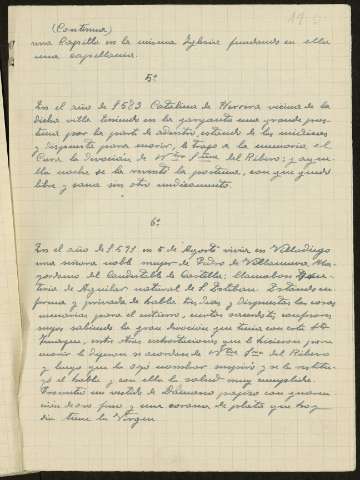 (Continua)
una Capilla en la misma Iglesia fundando en ella
una capellania.
5º
En el año de 1583 Catalina de Herrera vecina de la
dicha villa teniendo en la garganta una grande pos-
tema por la parte de adentro, estando de los médicos
y dispuesta para morir, le trajo a la memoria el
Cura la devocion de Ntra Sra del Ribero; y aque-
lla noche se la reventó la postema, con que quedó
libre y sana sin otro medicamento.
6º
En el año de 1591 en 5 de Agosto vivia en Villadiego
una señora noble mujer de Pedro de Villanueva Ma-
yordomo del Condestable de Castilla; llamabase
de Aguilar natural de S. Esteban. Estando en-
ferma y privada de habla tres dias y dispuestas las cosas
necesarias para el entierro, ciertos sacerdotes confesores
suyos sabiendo la gran devocion que tenia con esta Sta
Imagen, entre otras exhortaciones que le hicieron para
morir la dijeron se acordara de Ntra Sra del Ribero
y luego que la oyó nombrar suspiró y se la restitu-
yó el habla y con ella la salud muy cumplida.
Presentó un vestido de Damasco pajizo con guarni-
cion de oro fino y una corona de plata que hoy
dia tiene la Virgen